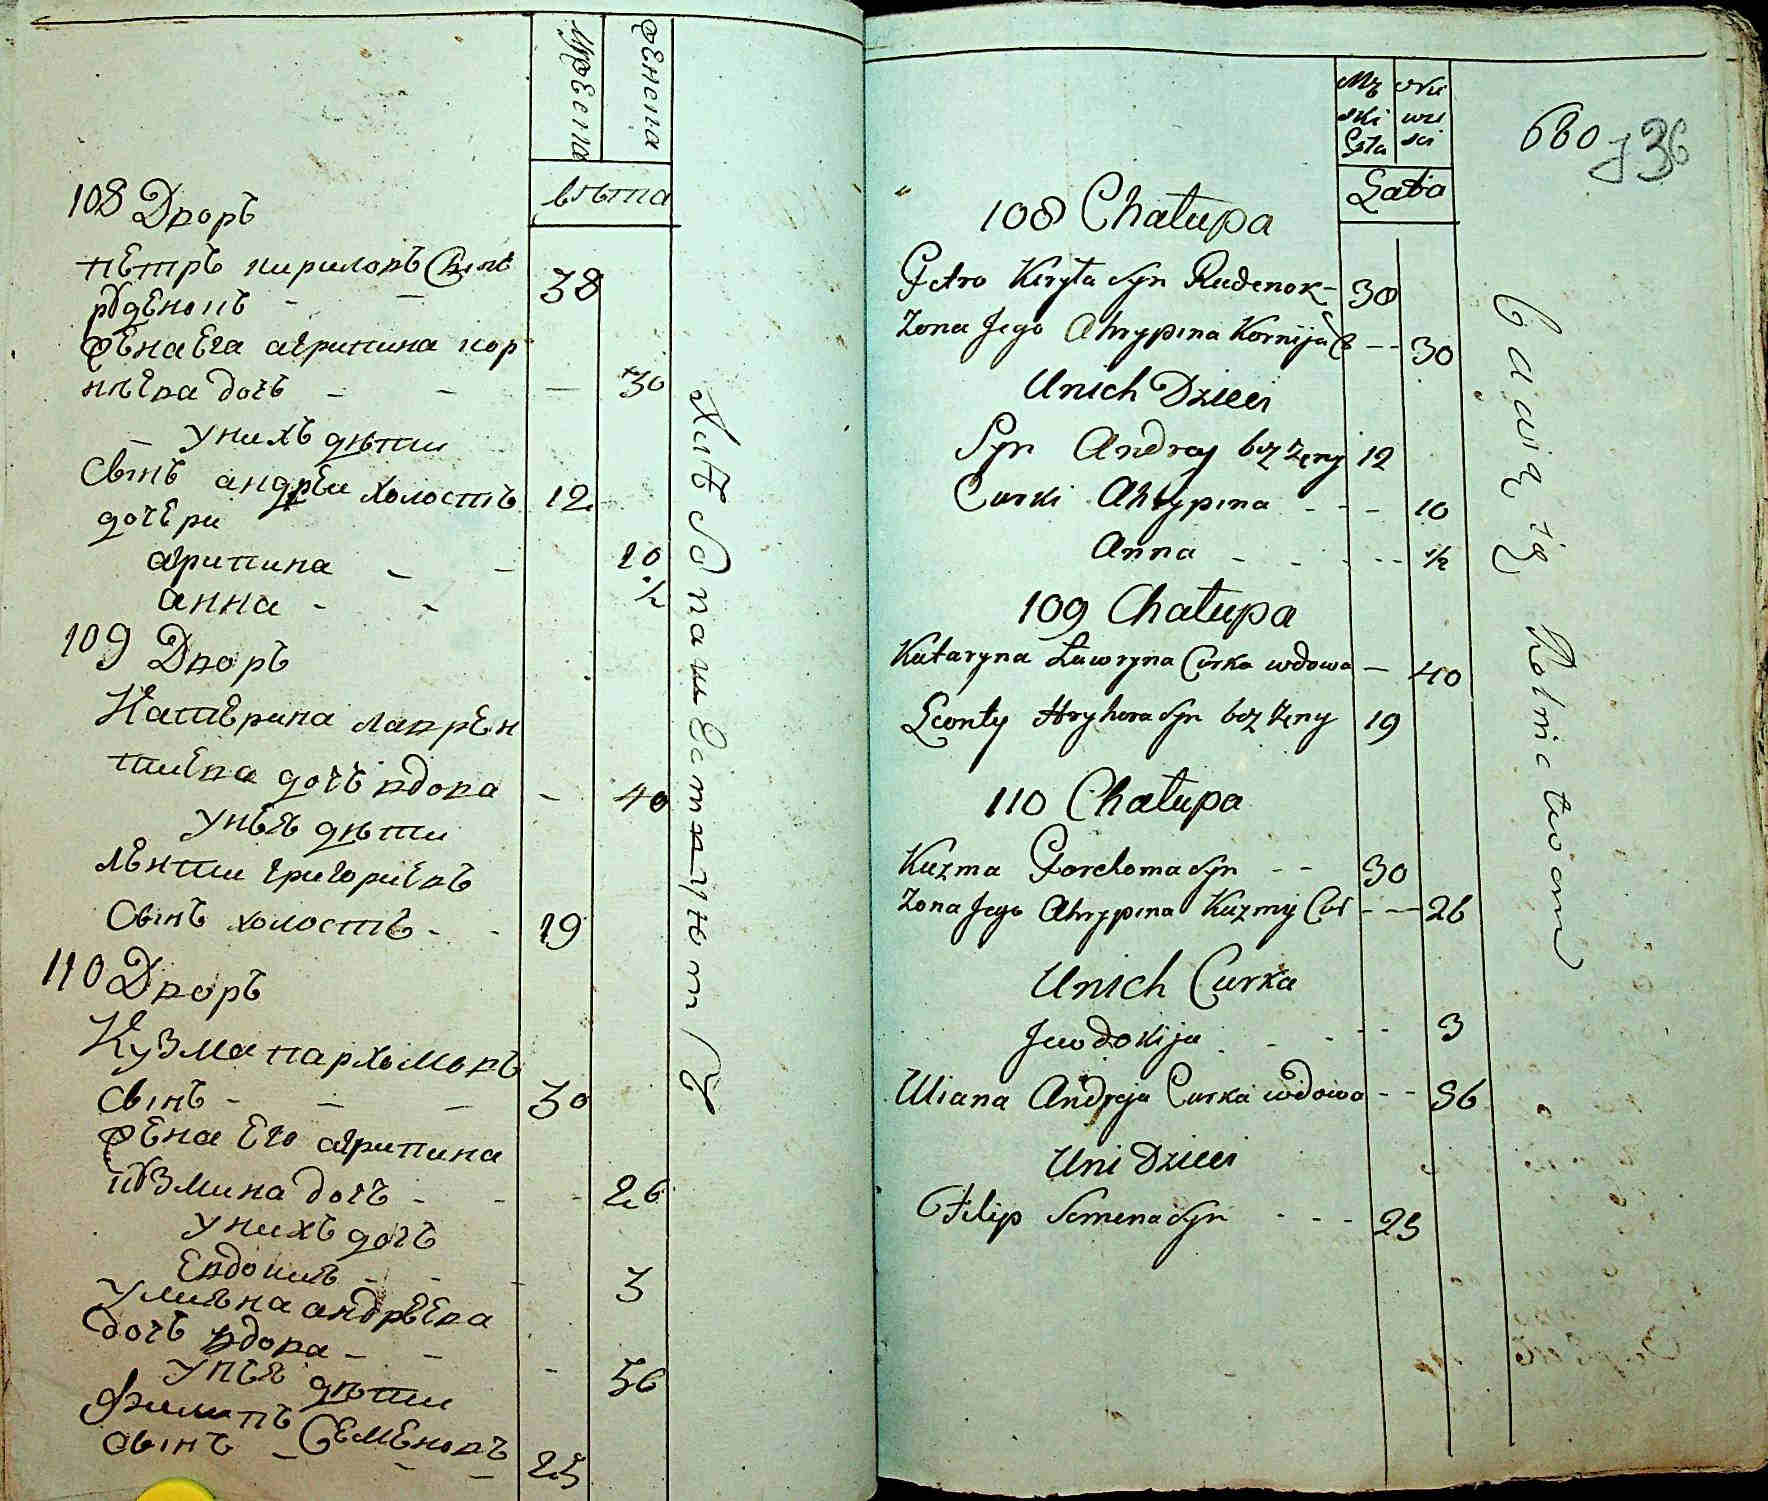 мужеска
женска
лѣта
108 Дворъ
петръ кириловъ Сынъ
руденокъ - - 38
жена Его агрипина кор
нѣева дочь - - - 30
- У нихъ дѣти
Сынъ андреи холостъ 12
дочери
агрипина - - 10
анна - - ½
109 Дворъ
Катерина лаврен
тиева дочь вдова - 40
У нѣя дѣти
лѣнти григориевъ
Сынъ холостъ - - 19
110 Дворъ
Кузма пархомовъ
Сынъ - - - 30
жена Его агрипина
кузмина дочь - - - 26
У нихъ дочь
Евдокия - - - 3
Улияна андрѣева
дочь вдова - - - 56
У нѣя дѣти
Филипъ Семеновъ
Сынъ - - - 25
Męz
ski
Lata
680
36
108 Chałupa
Petro Kiryła Syn Rudenok - 38
Zona Jego Ahrypina Kornija C - - 30
Unich Dzieci
Syn Andrey bez żeny 12
Curki Ahrypina - - - 10
Anna - - - - - ½
109 Chałupa
Kataryna Ławryna Curka wdowa - 40
Leonty Hryhora Syn bez żeny 19
110 Chałupa
Kuzma Porchoma Syn - - 30
Zona Jego Ahrypina Kuzmy Cur - - - 26
Unich Curka
Jewdokija - - - - 3
Uliana Andreja Curka wdowa - - 56
Uni Dzieci
Filip Semena Syn - - - 25
bawią się Rolnictwem